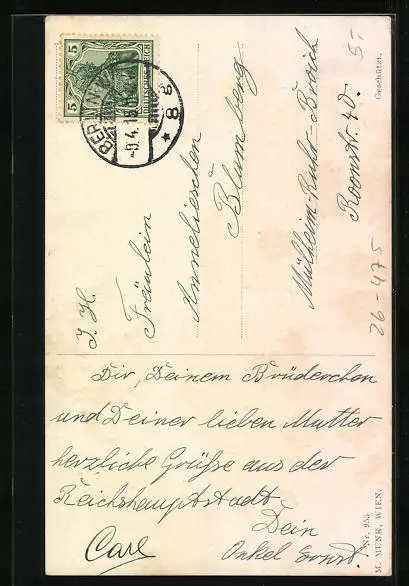 5
5
DEUTSCHES REICH
BERLIN
-9.4.15
* 8 b
J. H.
Fräulein
Annelieschen
Blumberg
Mülheim-Ruhr-Broich
Roonstr. 40.
5-
Geschützt.
26-475
Dir, Deinem Brüderchen
und Deiner lieben Mutter
herzliche Grüße aus der
Reichshauptstadt
Dein
Onkel Ernst.
Carl
Nr. 955
M. MUNK, WIEN.